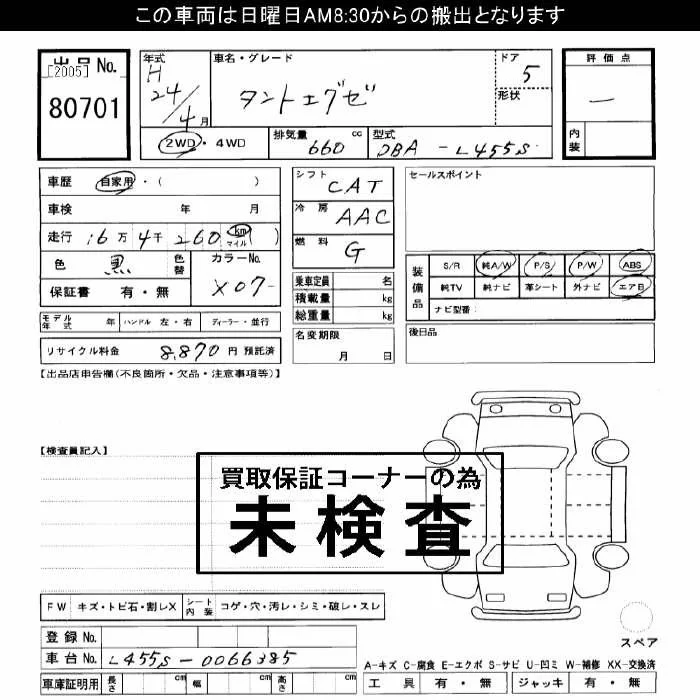 この車両は日曜日AM8:30からの搬出となります
出品No.
[2005]
80701
年式 H 24/4月
車名・グレード タントエグゼ
ドア 5
形状
評価点 —
内装
2WD・4WD
排気量 660 cc
型式 DBA-L455S
車歴 自家用・( )
車検 年 月
走行 16万4千260 km マイル ( )
色 黒 色替
カラーNo. X07-
保証書 有・無
シフト CAT
冷房 AAC
燃料 G
セールスポイント
装備品
S/R 純A/W P/S P/W ABS
純TV 純ナビ 革シート 外ナビ エアB
ナビ型番:
乗車定員 名
積載量 kg
総重量 kg
モデル年式 年 ハンドル 左・右 ディーラー・並行
名変期限 月 日
後日品
リサイクル料金 8,870 円 預託済
【出品店申告欄(不良箇所・欠品・注意事項等)】
【検査員記入】
買取保証コーナーの為
未検査
FW キズ・トビ石・割レX シート内装 コゲ・穴・汚レ・シミ・破レ・スレ
スペア
登録No.
車台No. L455S-0066385
A-キズ C-腐食 E-エクボ S-サビ U-凹ミ W-補修 XX-交換済
車庫証明用 長さ cm 幅 cm 高さ cm
工具 有・無 ジャッキ 有・無